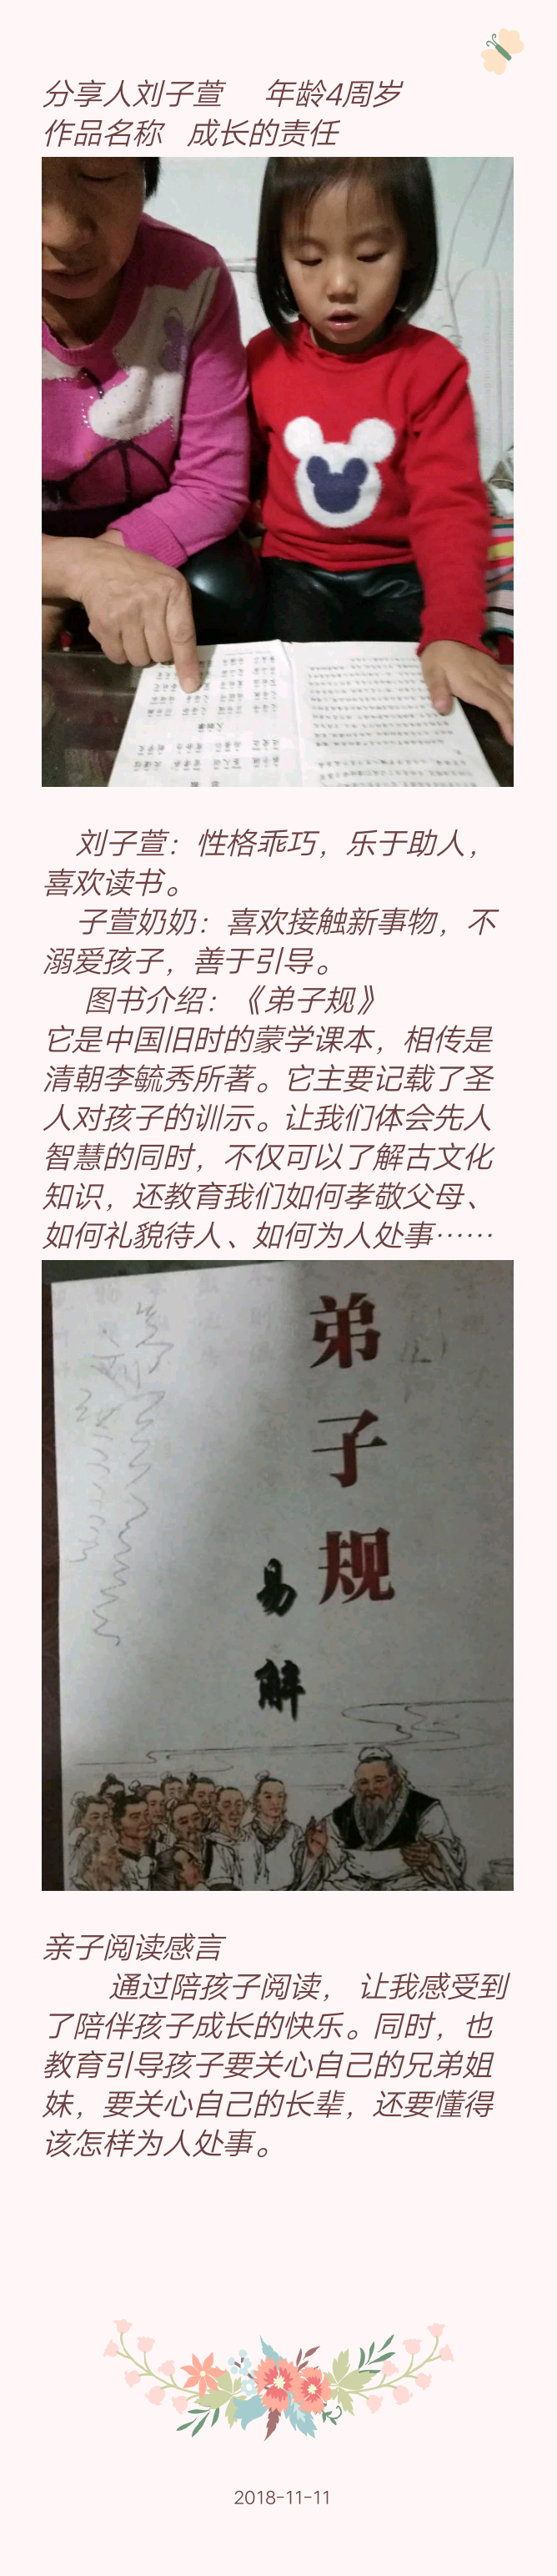 分享人刘子萱 年龄4周岁
作品名称 成长的责任
刘子萱：性格乖巧，乐于助人，
喜欢读书。
子萱奶奶：喜欢接触新事物，不
溺爱孩子，善于引导。
图书介绍：《弟子规》
它是中国旧时的蒙学课本，相传是
清朝李毓秀所著。它主要记载了圣
人对孩子的训示。让我们体会先人
智慧的同时，不仅可以了解古文化
知识，还教育我们如何孝敬父母、
如何礼貌待人、如何为人处事……
弟子规
易解
亲子阅读感言
通过陪孩子阅读， 让我感受到
了陪伴孩子成长的快乐。同时，也
教育引导孩子要关心自己的兄弟姐
妹，要关心自己的长辈，还要懂得
该怎样为人处事。
2018-11-11